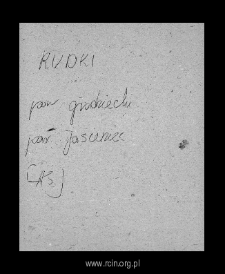 RUDKI
pow grodziecki
par Jasieniec
[AS]
www.rcin.org.pl